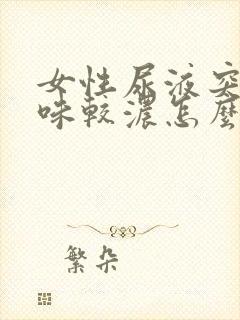 女性尿液突
味较濃怎麼
繁朵